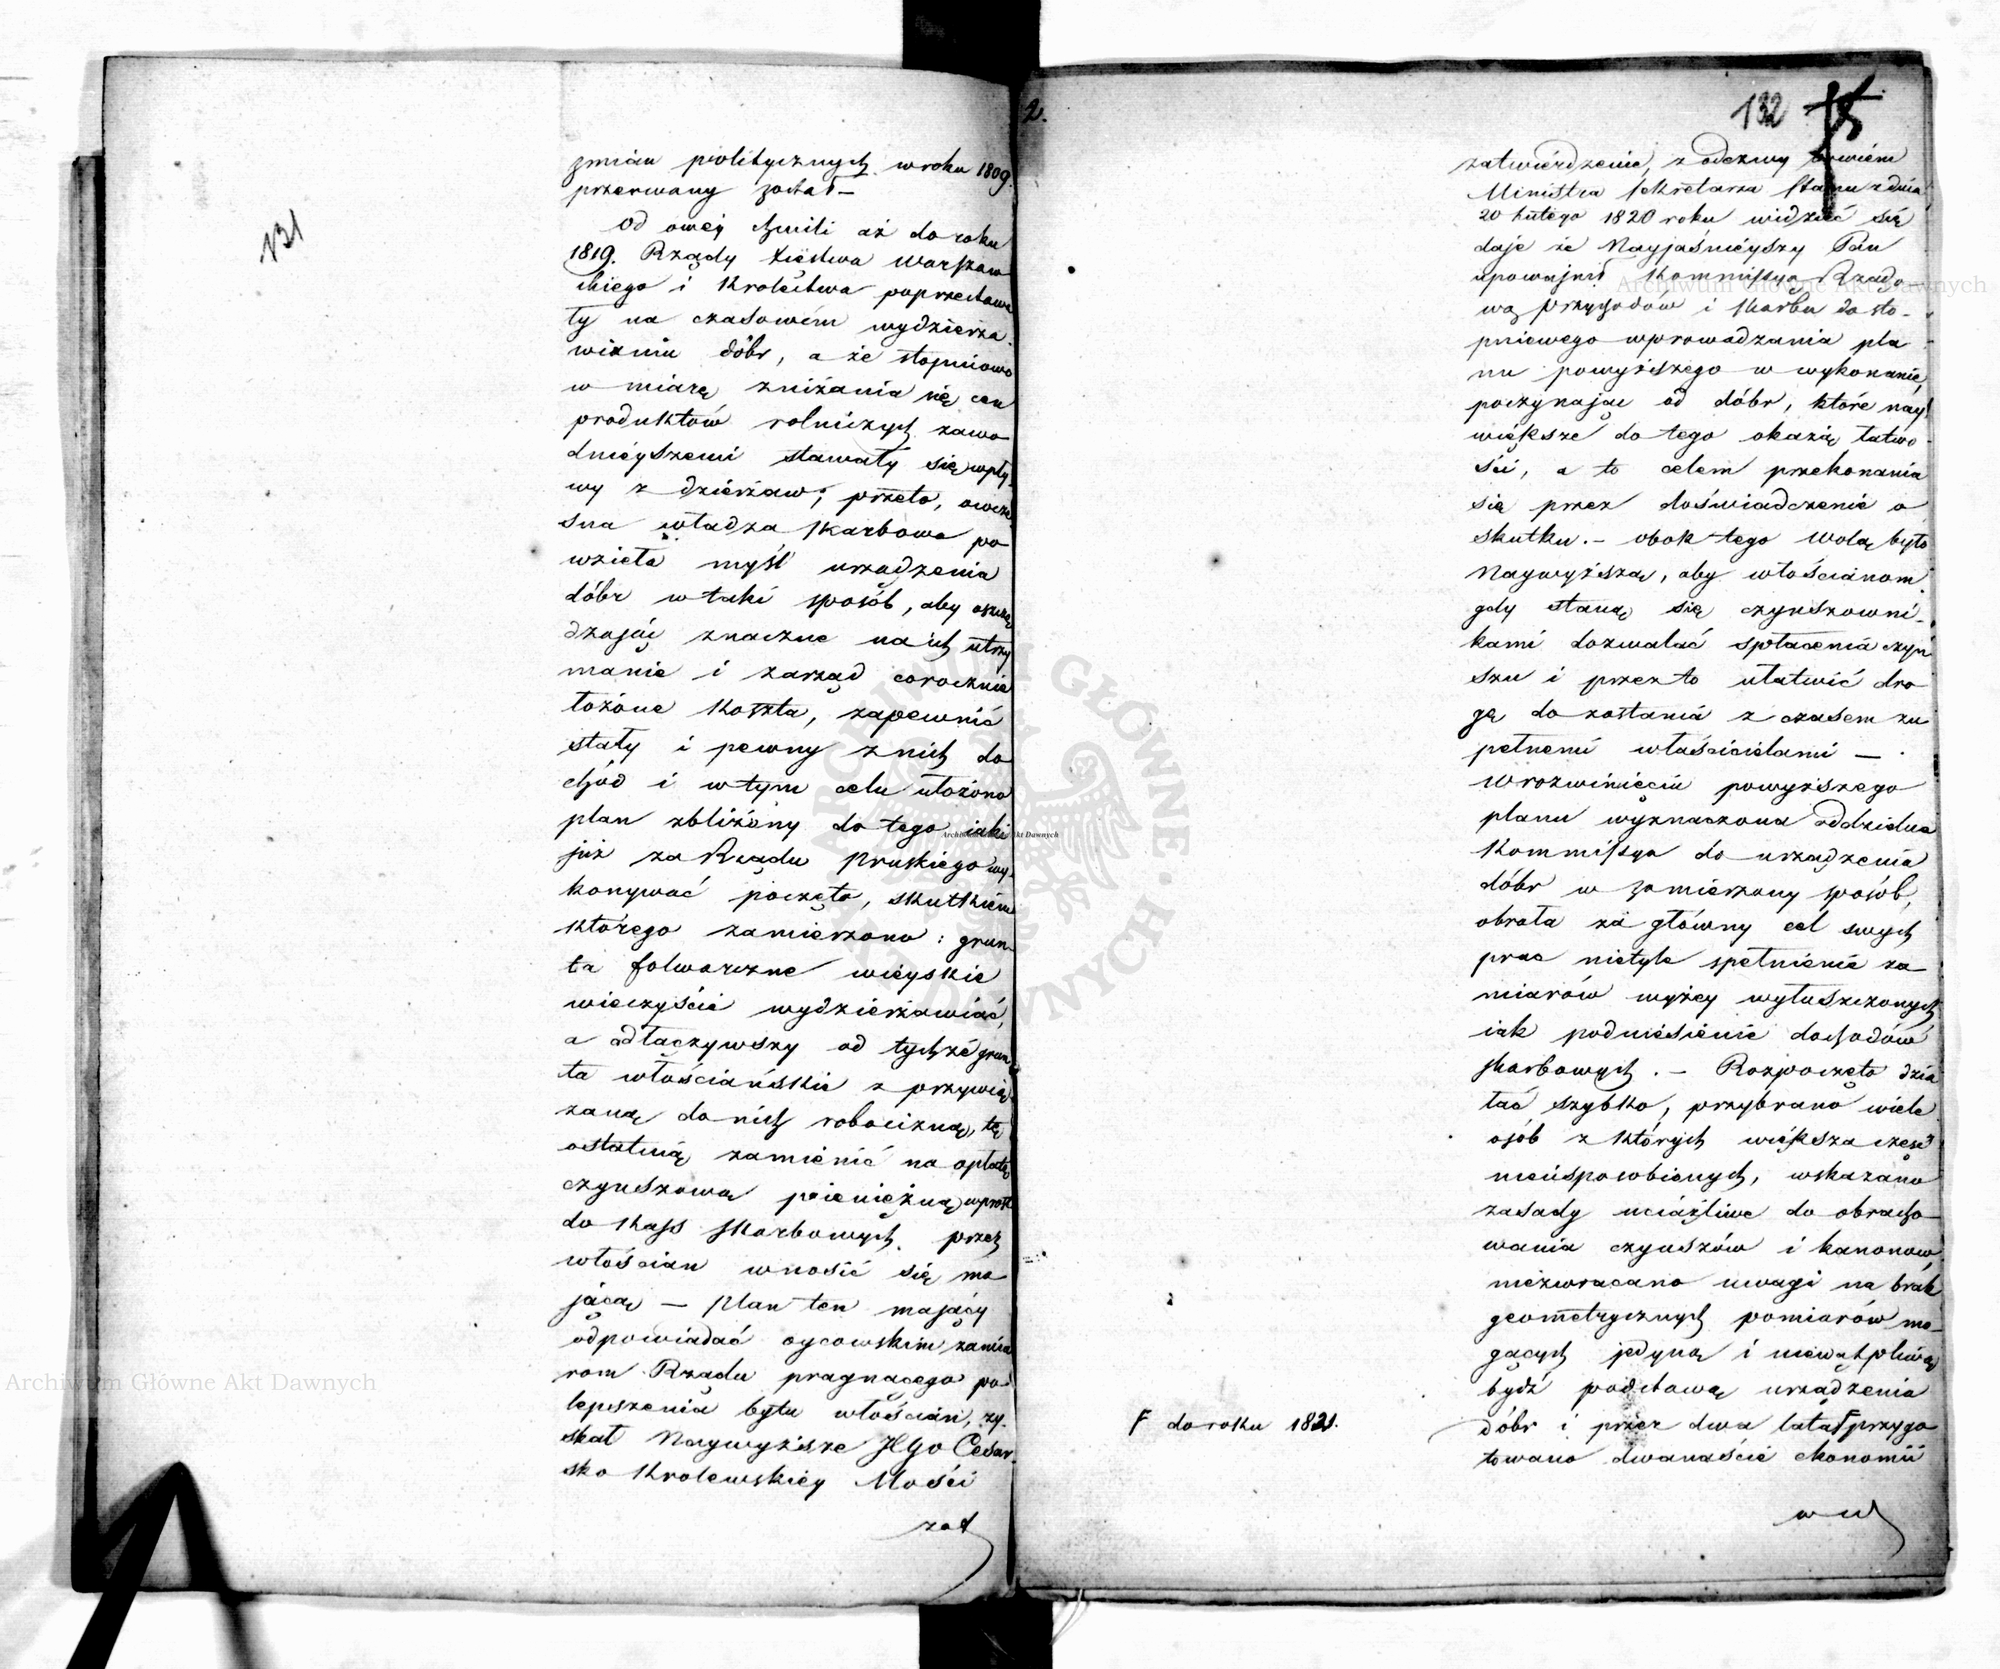 131
zmian politycznych w roku 1809.
przerwany został —
Od owéy chwili aż do roku
1819. Rządy Xięstwa Warszaw
skiego i Królestwa poprzestawa
ły na czasowém wydzierża
wianiu dóbr, a że stopniowo
w miarę zniżania się cen
produktów rolniczych zawo
dnieyszemi stawały się wpły
wy z dzierżaw; przeto, ówcze
sna władza Skarbowa po
wzięła myśl urządzenia
dóbr w taki sposób, aby oszczę
dzając znaczne na ich utrzy
manie i zarząd corocznie
łożone koszta, zapewnić
stały i pewny z nich do
chód i w tym celu ułożono
plan zbliżony do tego jaki
już za Rządu Pruskiego wy
konywać poczęto, skutkiem
którego zamierzono: grun
ta folwarczne wieyskie
wieczyście wydzierżawiać,
a odłączywszy od tychże grun
ta włościańskie z przywią
zaną do nich robocizną, tę
ostatnią zamienić na opłatę
czynszową pieniężną wprost
do Kass Skarbowych przez
włościan wnosić się ma
jącą — Plan ten mający
odpowiadać oycowskim zamia
rom Rządu pragnącego po
lepszenia bytu włościan, zy
skał Naywyższe JEgo Cesar
sko Królewskiey Mości
zat
2.
132
zatwierdzenie, z odezwy bowiem
Ministra Sekretarza Stanu z dnia
20 Lutego 1820 roku widzieć się
daje że Nayjaśnieyszy Pan
upoważnił Kommissyą Rządo
wą Przychodów i Skarbu do sto-
pniowego wprowadzania pla
nu powyższego w wykonanie,
poczynając od dóbr, które nay
większe do tego okażą łatwo
ści, a to celem przekonania
się przez doświadczenie o
skutku. — obok tego wolą było
Naywyższą, aby włościanom
gdy staną się czynszowni-
kami dozwalać spłacenia czyn
szu i przez to ułatwić dro
gę do zostania z czasem zu
pełnemi właścicielami —
W rozwinięciu powyższego
planu wyznaczona oddzielna
Kommissya do urządzenia
dóbr w zamierzony sposób,
obrała za główny cel swych
prac nietyle spełnienie za
miarów wyżey wyłuszczonych
iak podniesienie dochodów
Skarbowych. — Rozpoczęto dzia
łać szybko, przybrano wiele
osób z których większa część
nieusposobionych, wskazano
zasady uciążliwe do obracho
wania czynszów i kanonów
niezwracano uwagi na brak
geometrycznych pomiarów mo
gących jedyną i niewątpliwą
bydź podstawą urządzenia
F do roku 1821.
dóbr i przez dwa lata F przygo
towano dwanaście ekonomii
w ul
Archiwum Główne Akt Dawnych
Archiwum Główne Akt Dawnych
Archiwum Główne Akt Dawnych
ARCHIWUM GŁÓWNE AKT DAWNYCH